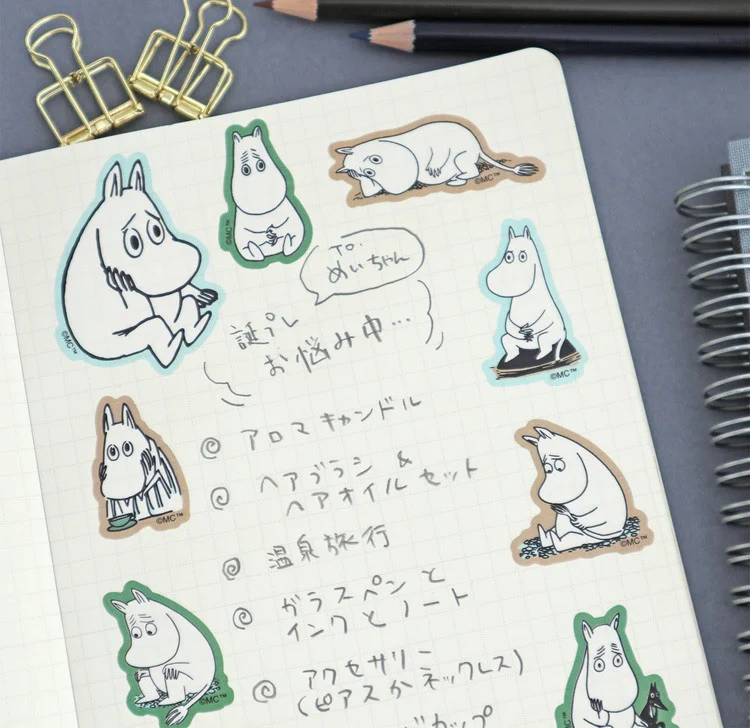 ©MC™
©MC™
©MC™
to.
めいちゃん
誕プレ
お悩み中…
©MC™
アロマキャンドル
ヘアブラシ &
ヘアオイルセット
©MC™
©MC™
温泉旅行
ガラスペンと
インクとノート
アクセサリー
(ピアスかネックレス)
©MC™
カップ
©MC